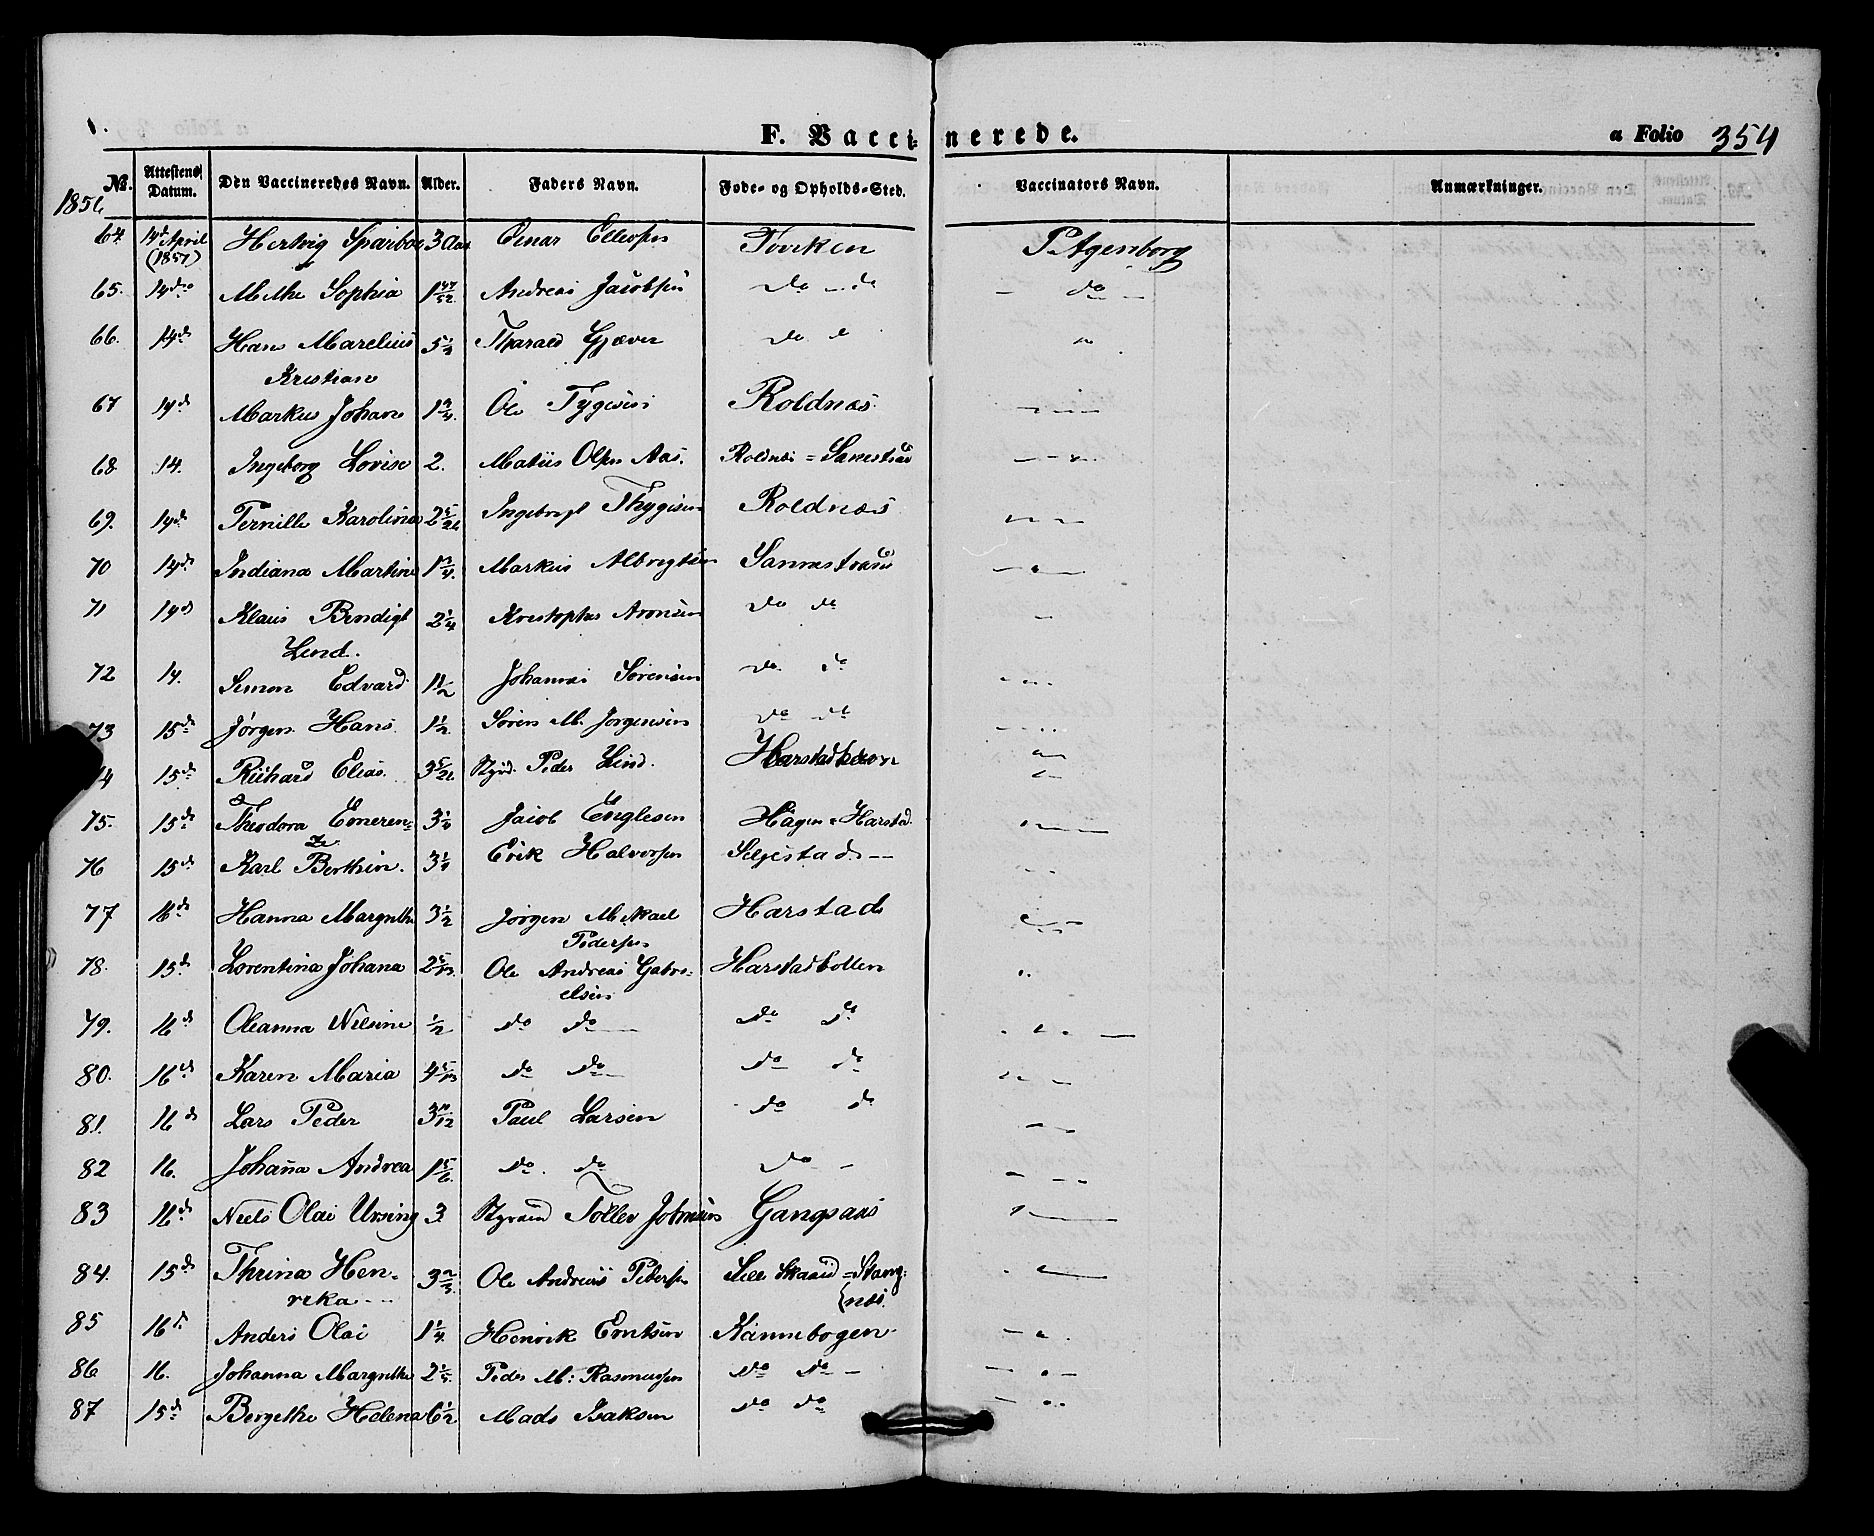 F. Vaccinerede.
a Folio 354
1856
No. Attestens Datum. Den Vaccineredes Navn. Alder. Faders Navn. Føde- og Opholds-Sted. Vaccinators Navn. Anmærkninger.
64. 14d April Hertvig Sparboe 3 Aar Einar Ellevsen
(1857)
65. 14de Methe Sophia 1 47/52 Andreas Jacobsen do do do
66. 14de Hans Marelius 5 1/4 Tharald Gjæver do do
Kristian
67 14d Markus Johan 1 3/4. Ole Tygesen Roldnæs
68 14. Ingeborg Lovise 2. Matiis Olsen Aas. Roldnæs =
69. 14d Pernille Karolina Ingebregt Thygesen Roldnæs
70 14de Indiana Martine 1 3/4. Markus Albregtsen
71 14d Klaus Bendigt 2 1/4 Kristophes Aronsen do do
Lind.
72 14. Simon Edvard 1 1/2 Johannes Sørensen do. do
73 15de Jørgen Hans 1 1/2. Søren M. Jørgensen do do
15de Richard Elias 3 Peder Lind. Harstadhavn
75. 15de Theodora Emeren= 3 1/4 Jacob Englesen Hagen = Harstad.
76 15de Karl Berthin. 3 1/4 Erik Halversen Seljestad
77 16de Hanna Margrethe 3 1/2 Jørgen Mikael Harstad
Pedersen
78. 15d Lorentina Johana 2 5/13. Ole Andreas Gabri= Harstadbotten
elsen
79. 16d Oleanna Nilsine 1/2 do do do do
80. 16de Karen Maria 4 5/13 do do do do
81. 16d Lars Peder 3 11/12 Paul Larsen do do
82 16. Johana Andrea 1 5/6. do. do do
83 16de Niels Olai Ursing 3. Tøllev Johnsen Gangsaas
84. 15de Thrina Hen- 3 2/3. Ole Andreas Pedersen
reka
85 16d. Anders Olai 1 1/4. Henrik Erntsen Kannebogen
86 16. Johanna Margrethe Peder M: Rasmussen do do
87 15de Bergethe Helena 6 1/2 Mads Isaksen do do